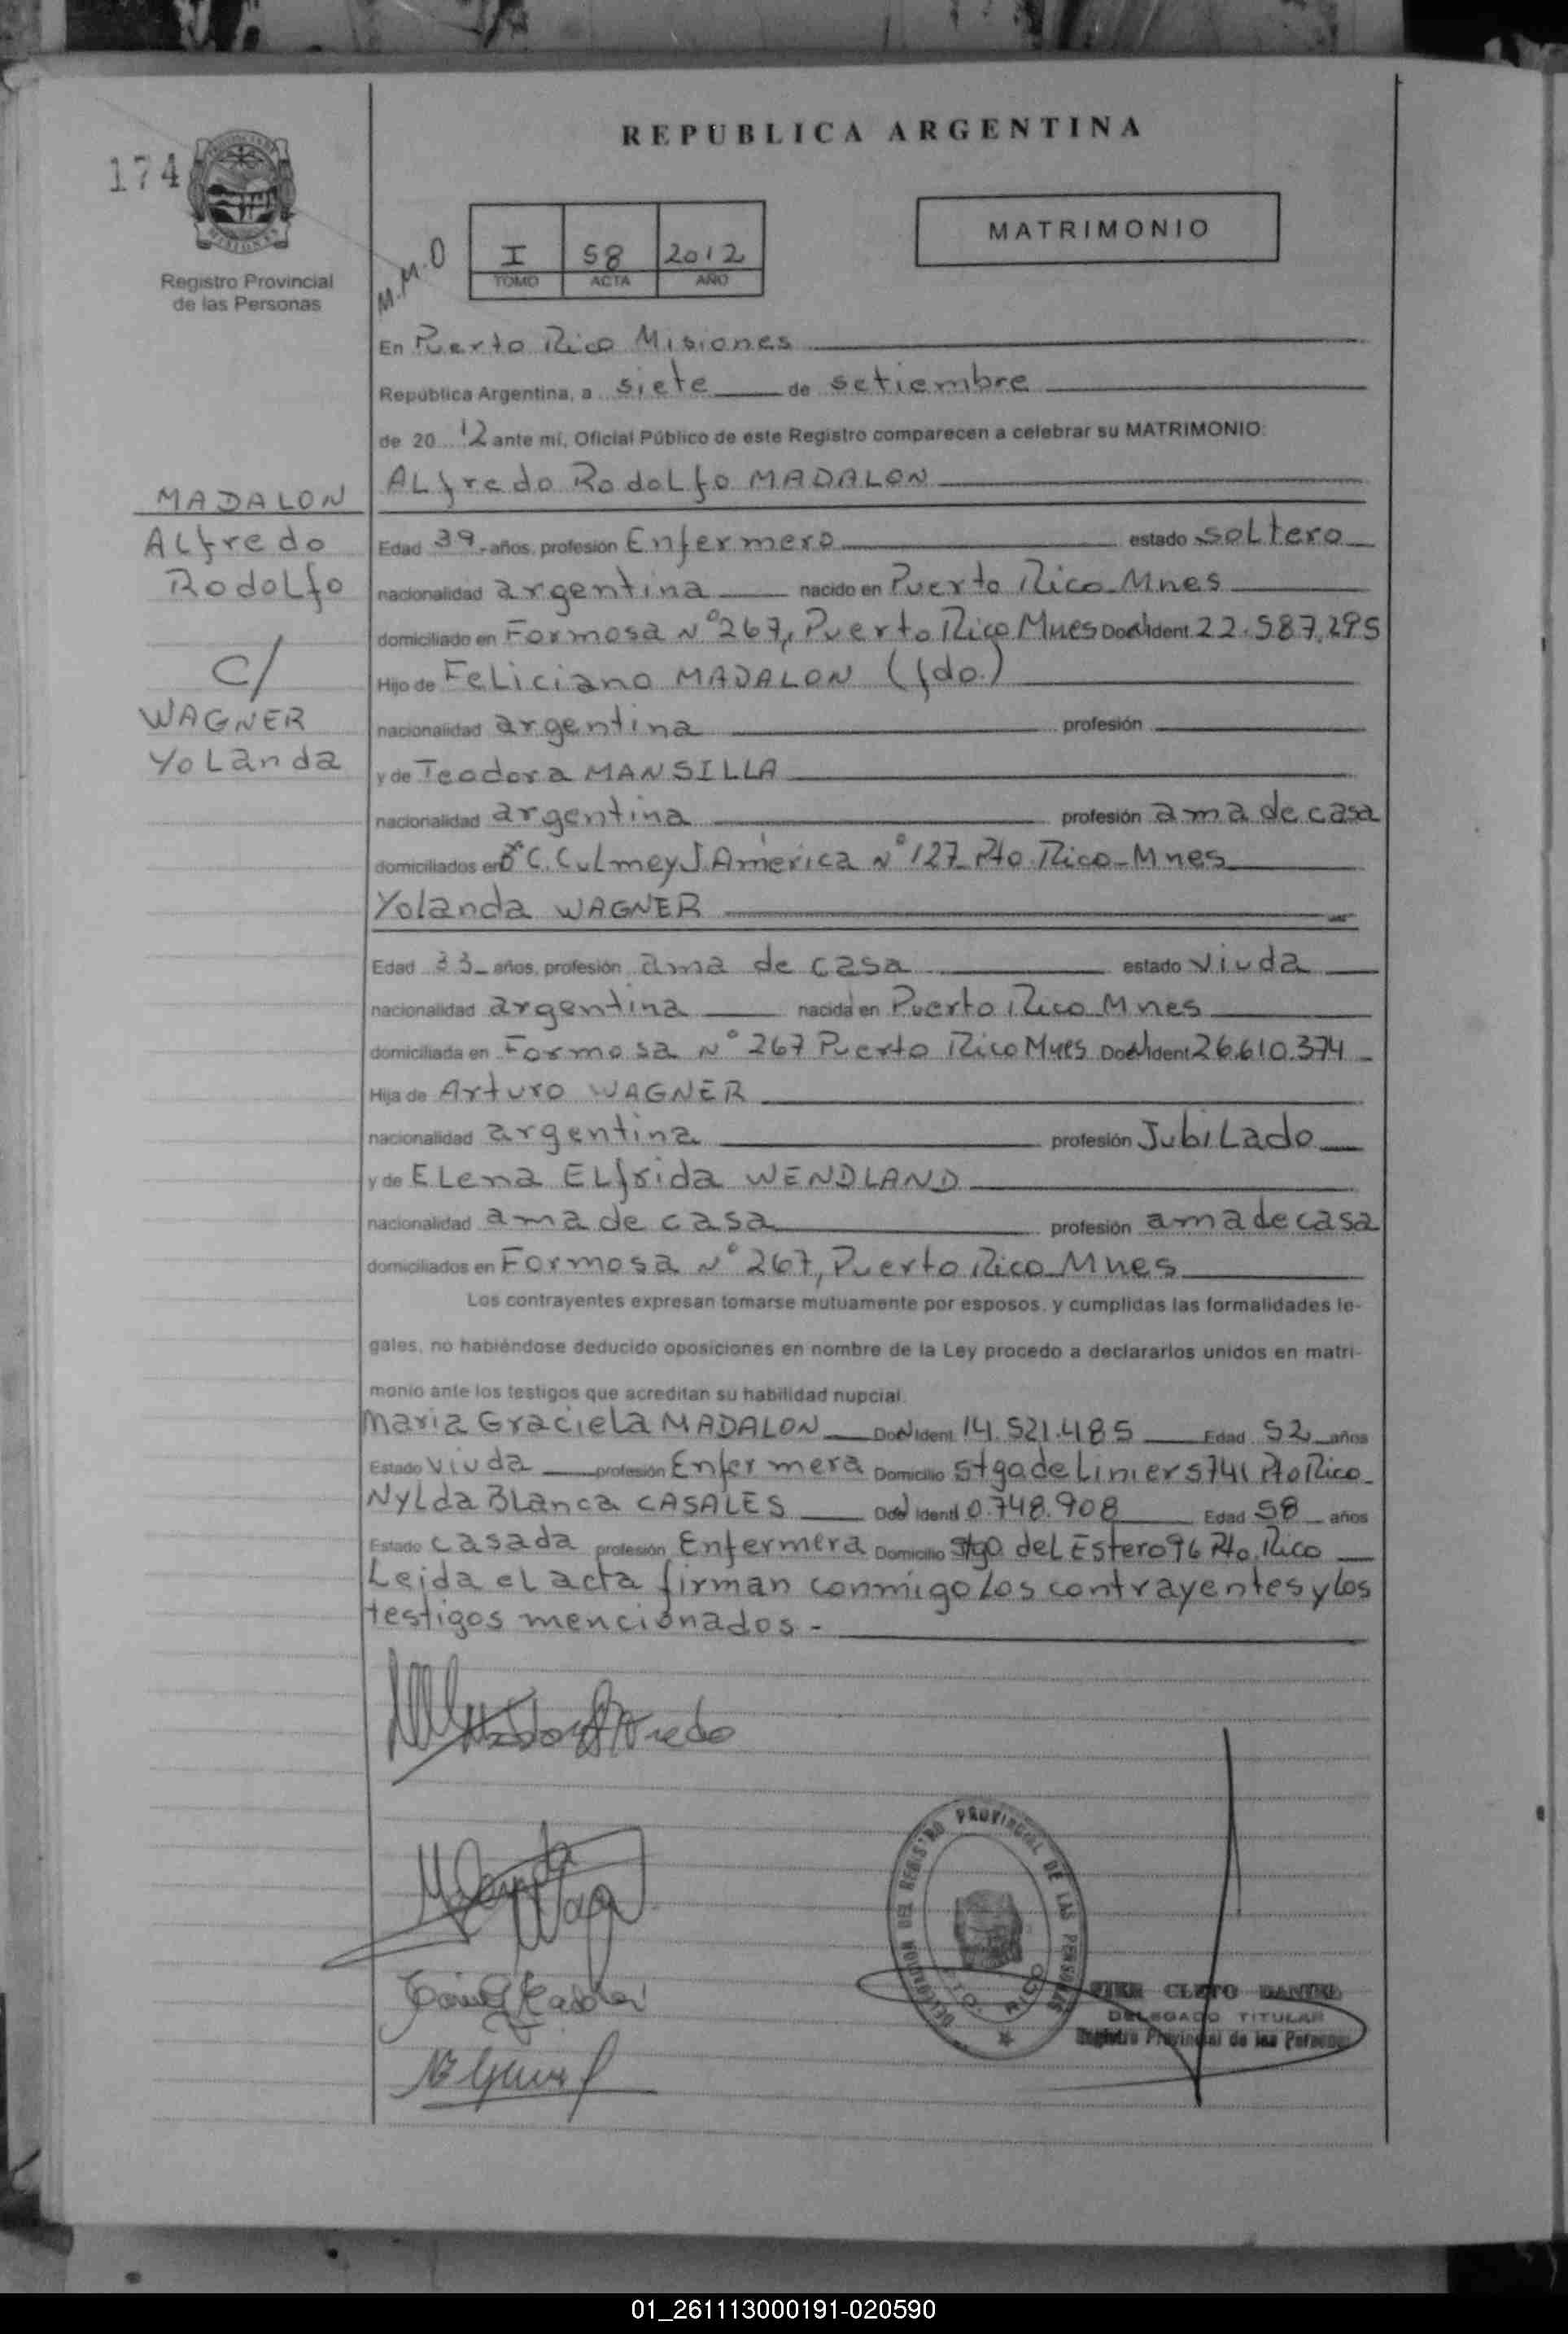 REPUBLICA ARGENTINA
174
MISIONES
Registro Provincial
de las Personas
M.M.O
I 58 2012
TOMO ACTA AÑO
MATRIMONIO
En Puerto Rico Misiones
República Argentina, a siete de setiembre
de 20 12 ante mí, Oficial Público de este Registro comparecen a celebrar su MATRIMONIO:
ALfredo RodoLfo MADALON
MADALON
ALfredo
RodoLfo
C/
WAGNER
YoLanda
Edad 39 años, profesión Enfermero estado soLtero
nacionalidad argentina nacido en Puerto Rico Mnes
domiciliado en Formosa N° 267, Puerto Rico Mnes Doc. Ident. 22.587.295
Hijo de FeLiciano MADALON (fdo.)
nacionalidad argentina profesión
y de Teodora MANSILLA
nacionalidad argentina profesión ama de casa
domiciliados en C. CuLmey J. América N° 127 Pto. Rico-Mnes
Yolanda WAGNER
Edad 33 años, profesión ama de casa estado viuda
nacionalidad argentina nacida en Puerto Rico Mnes
domiciliada en Formosa N° 267 Puerto Rico Mnes Ident 26.610.374
Hija de Arturo WAGNER
nacionalidad argentina profesión JubiLado
y de ELena ELfrida WENDLAND
nacionalidad ama de casa profesión ama de casa
domiciliados en Formosa N° 267, Puerto Rico Mnes
Los contrayentes expresan tomarse mutuamente por esposos, y cumplidas las formalidades le-
gales, no habiéndose deducido oposiciones en nombre de la Ley procedo a declararlos unidos en matri-
monio ante los testigos que acreditan su habilidad nupcial.
Maria GracieLa MADALON Ident. 14.521.485 Edad 52 años
Estado viuda profesión Enfermera Domicilio Stgo de Liniers 741 Pto Rico
NyLda BLanca CASALES Ident 10.748.908 Edad 58 años
Estado casada profesión Enfermera Domicilio Stgo. deL Estero 96 Pto. Rico
Leida eL acta firman conmigo Los contrayentes y Los
testigos mencionados.-
DELEGACION DEL REGISTRO PROVINCIAL DE LAS PERSONAS
PTO. RICO
CLETO DANIEL
DELEGADO TITULAR
Registro Provincial de las Personas
01_261113000191-020590